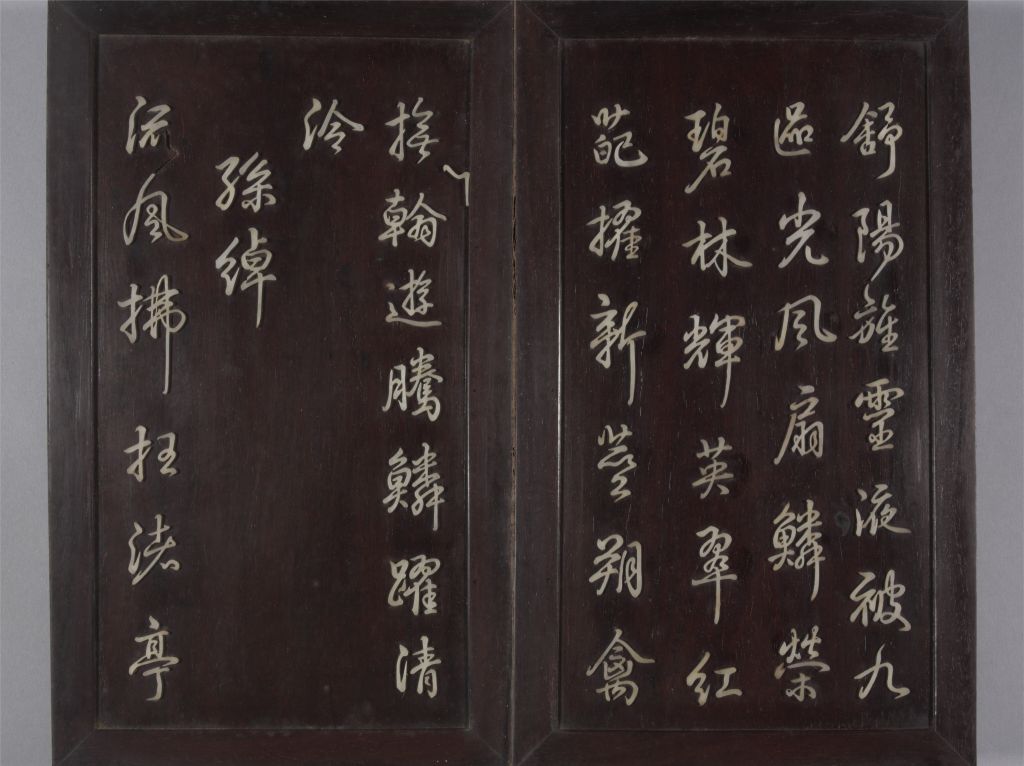 舒陽旌靈液被九
區光風扇鱗榮
碧林輝英翠紅
葩擢新莖翔禽
撫翰遊騰鱗躍清
泠
孫綽
流風拂枉渚亭